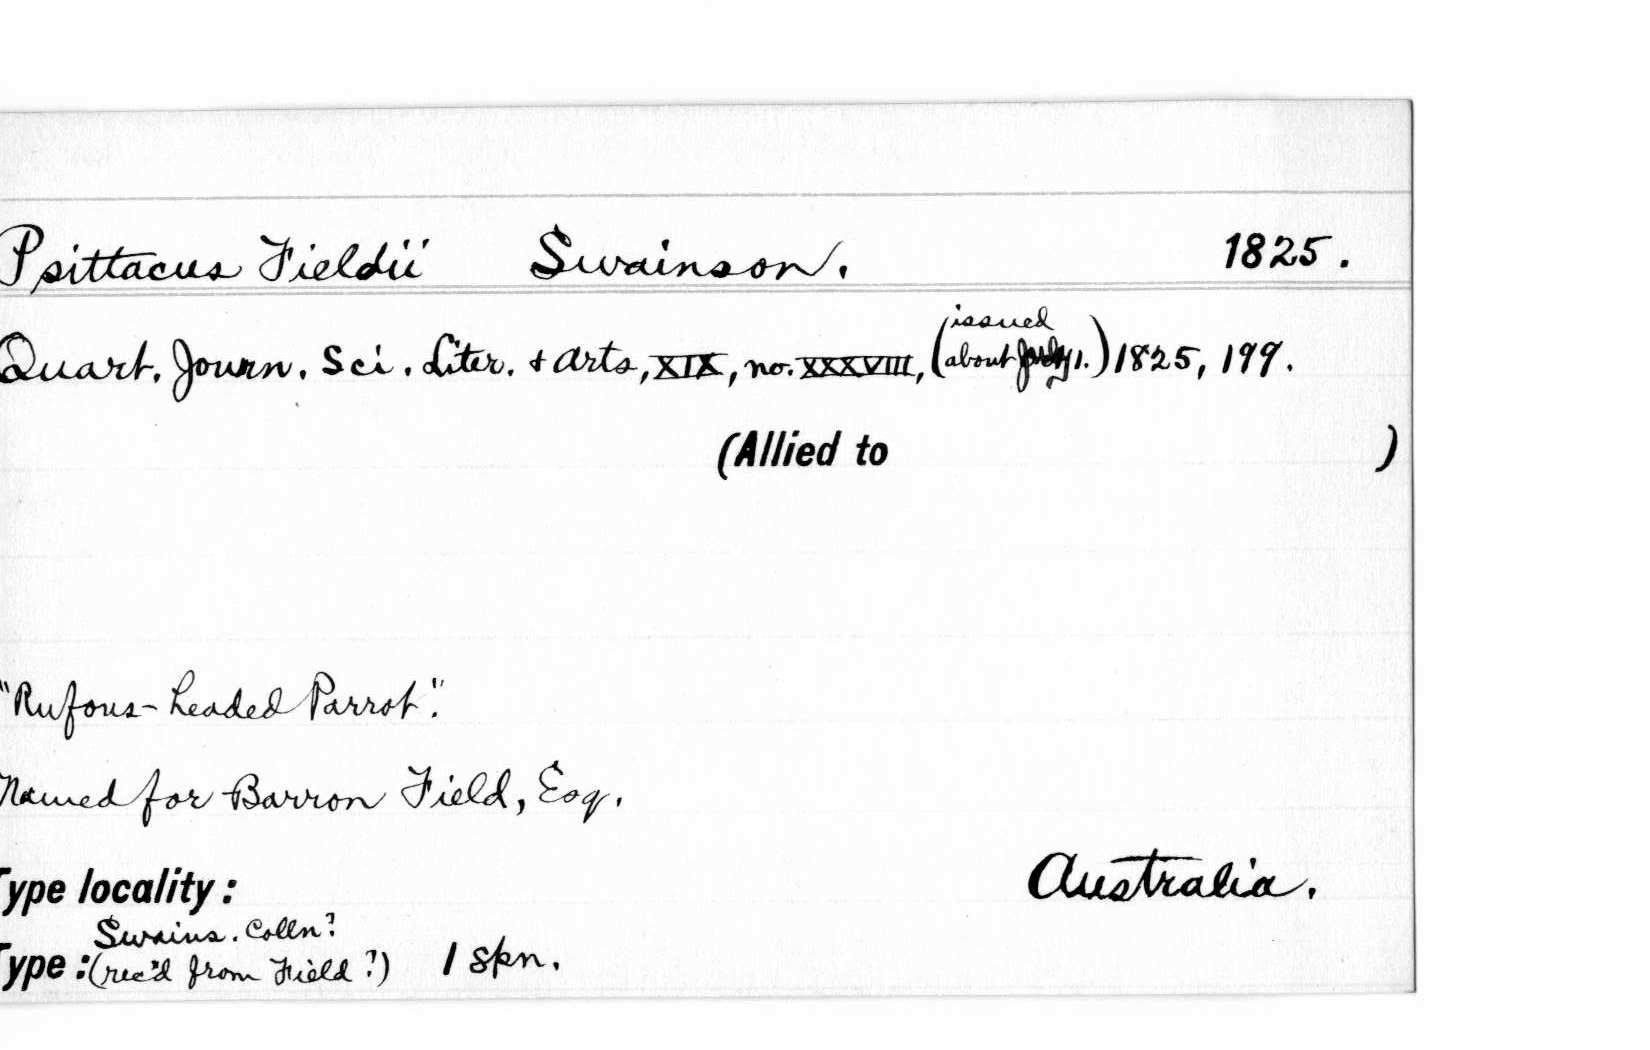 Psittacus Fieldii Swainson. 1825.
issued
Quart. Journ. Sci. Liter. & Arts, XIX, no. XXXVIII, (about July 1.) 1825, 199.
(Allied to )
"Rufous-headed Parrot".
Named for Barron Field, Esq.
Type locality: Australia.
Swains. Colln?
Type: (rec'd from Field?) 1 spn.